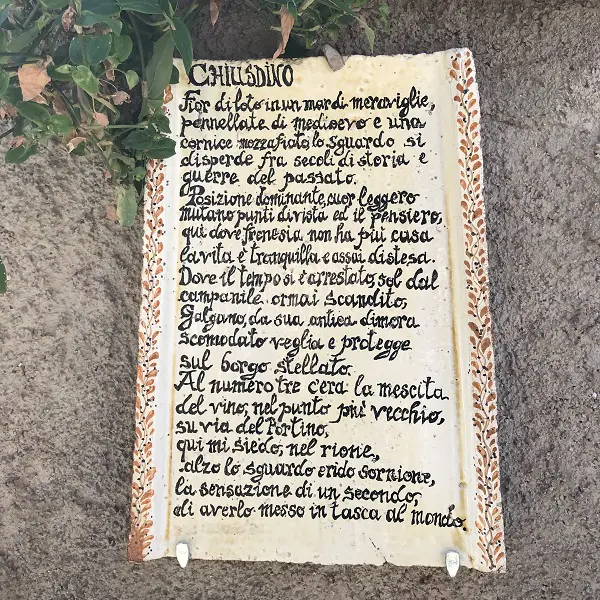 CHIUSDINO
Fior di loto in un mar di meraviglie,
pennellate di medioevo e una
cornice mozzafiato, lo sguardo si
disperde fra secoli di storia e
guerre del passato.
Posizione dominante, cuor leggero
mutano punti di vista ed il pensiero,
qui dove frenesia non ha più casa
la vita è tranquilla e assai distesa.
Dove il tempo si è arrestato, sol dal
campanile ormai scandito,
Galgano, da sua antica dimora
scomodato veglia e protegge
sul borgo stellato.
Al numero tre c'era la mescita
del vino, nel punto più vecchio,
su via del Portino,
qui mi siedo, nel rione,
alzo lo sguardo e rido sornione,
la sensazione di un secondo,
di averlo messo in tasca al mondo.